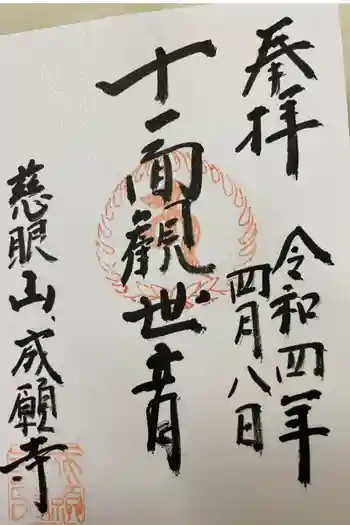 奉拝
令和四年
四月八日
十一面觀世音
慈眼山成願寺